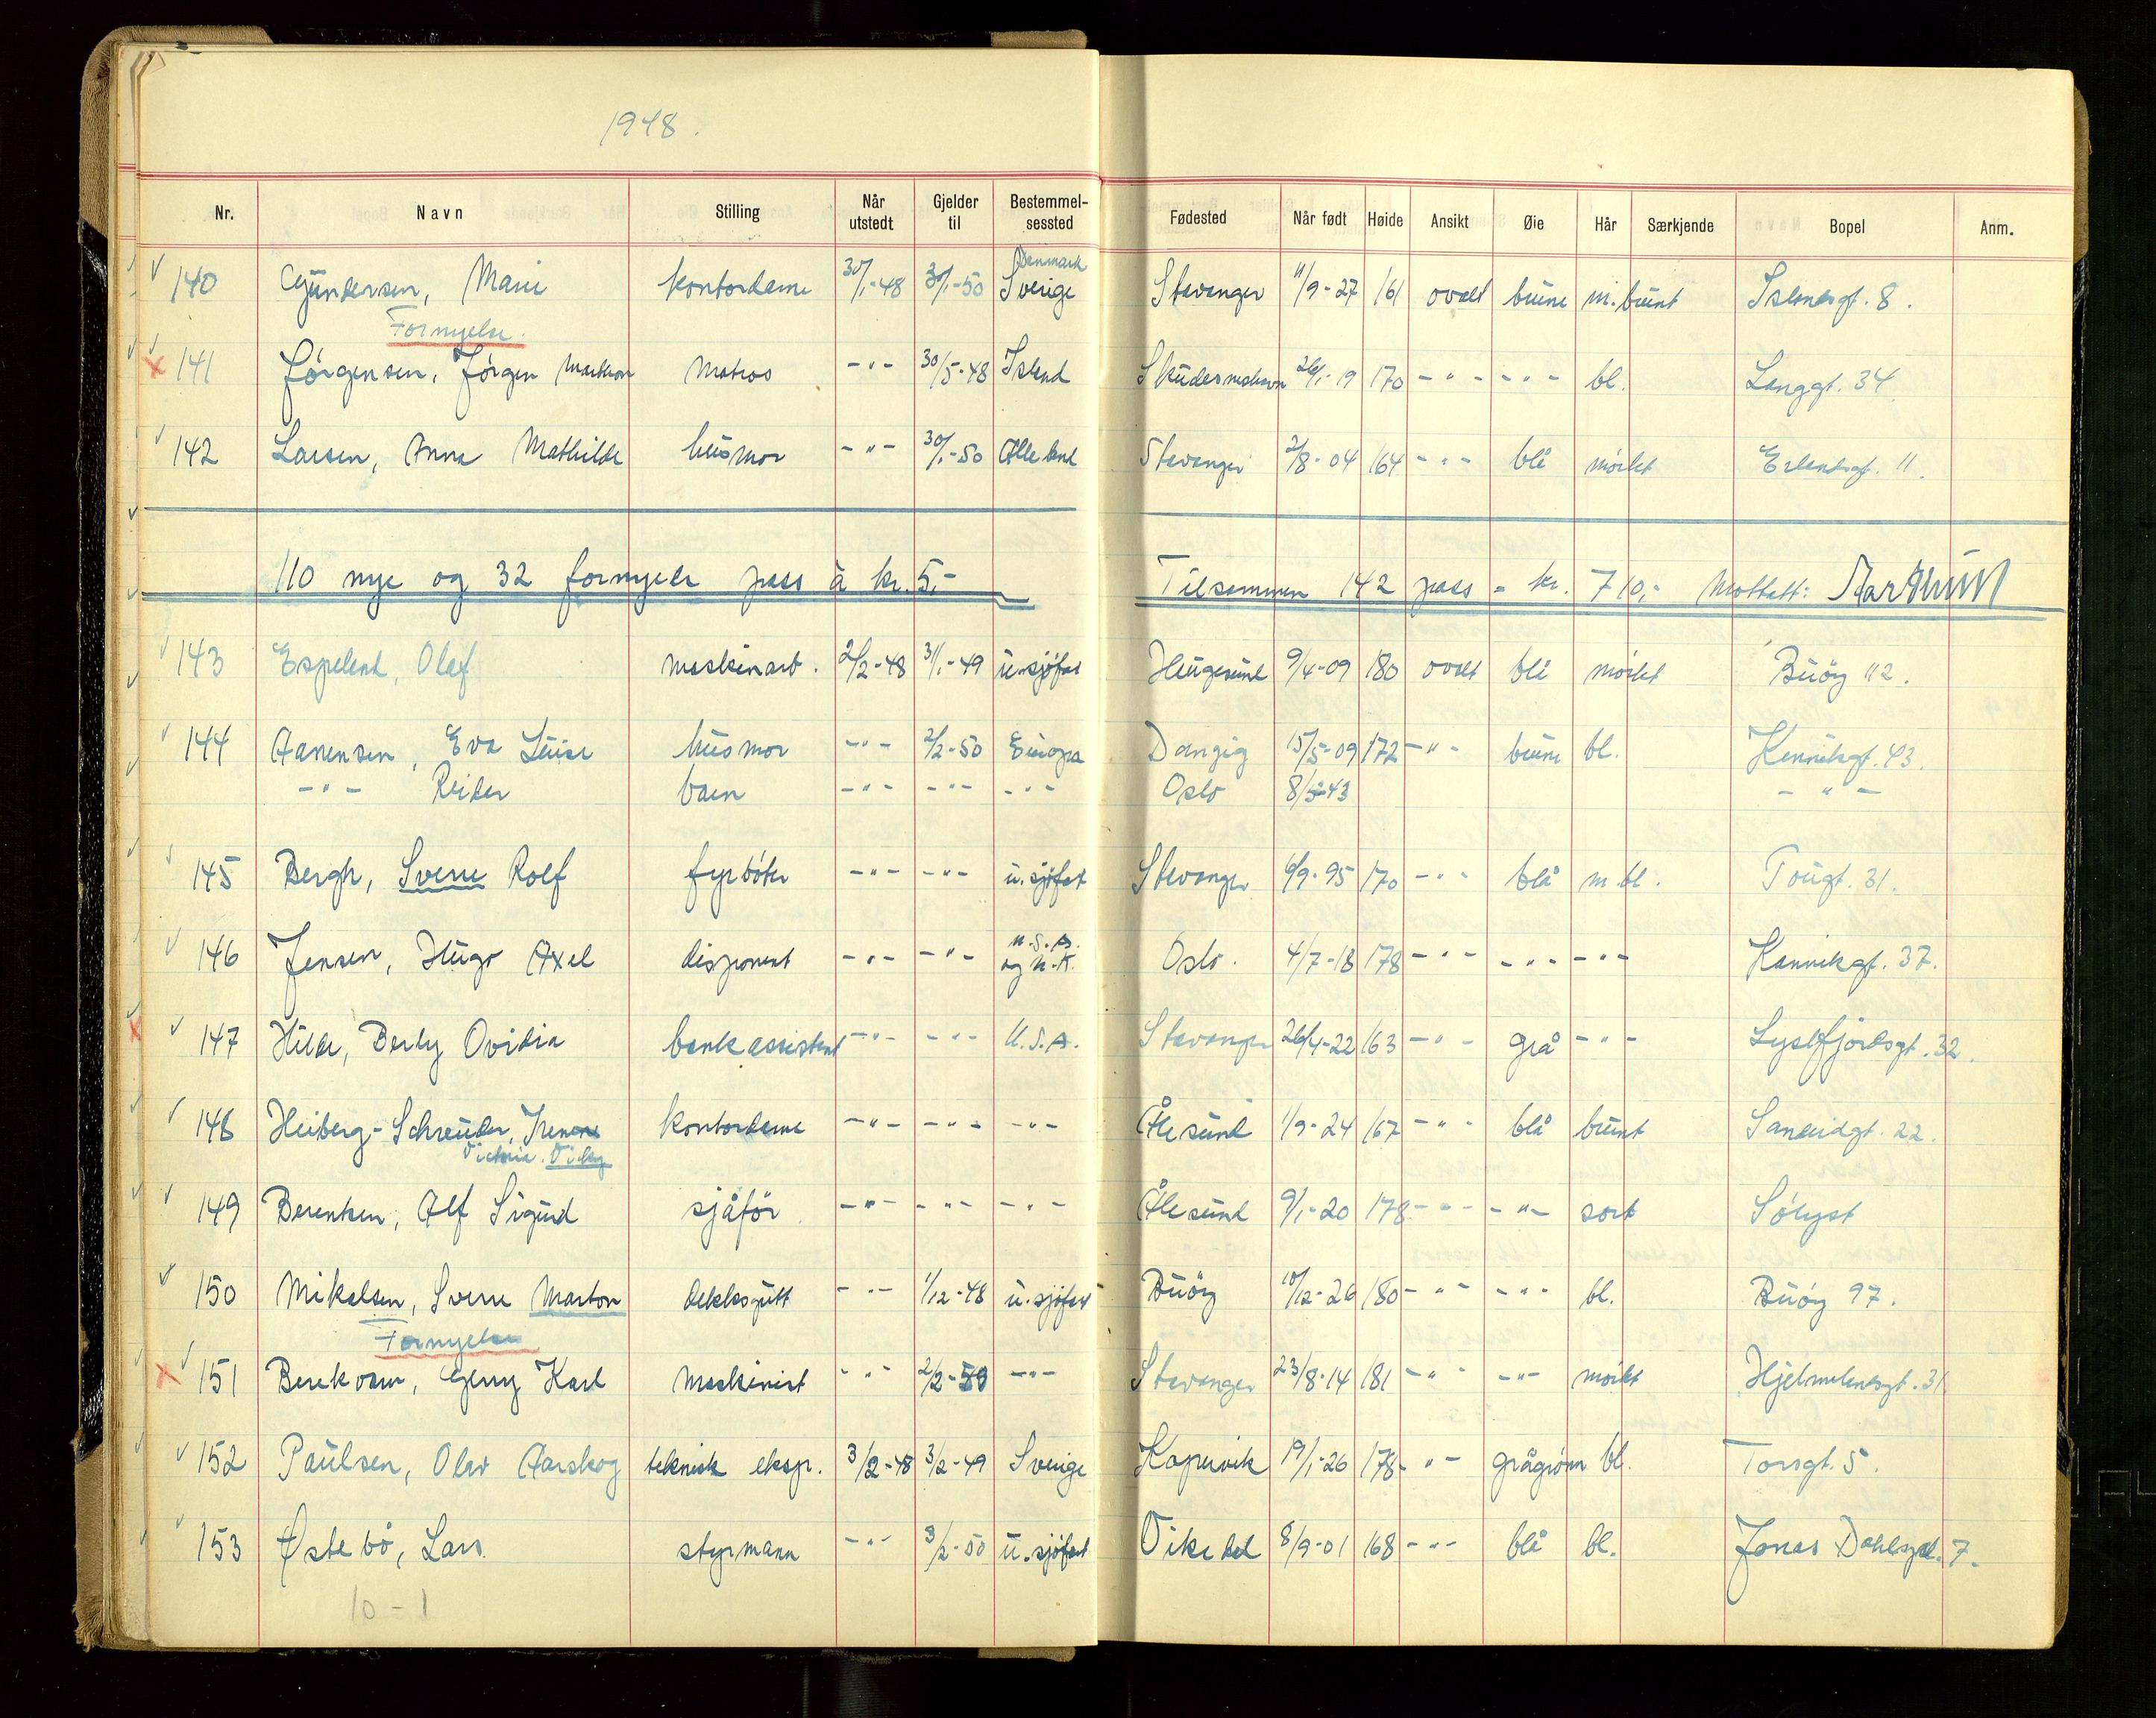 1948.
Nr. Navn Stilling Når utstedt Gjelder til Bestemmelsessted Fødested Når født Høide Ansikt Øie Hår Særkjende Bopel Anm.
Danmark
140 Gundersen, Marie kontordame 30/1-48 30/1-50 Sverige Stavanger 11/9-27 161 ovalt brune m.brunt Islandsgt. 8.
Fornyelse.
141 Jørgensen, Jørgen matros -"- 30/5-48 Island Skudeneshavn 26/1-19 170 -"- -"- bl. Langgt. 34.
142 Larsen, Anna Mathilde husmor -"- 30/1-50 Alle land Stavanger 2/8-04 164 -"- blå mørkt Erlendsgt. 11.
110 nye og 32 fornyede pass à kr. 5,- Tilsammen 142 pass = kr. 710,- Mottatt:
143 Espeland, Olaf maskinarb. 2/2-48 31/1-49 u.sjøfart Haugesund 9/4-09 180 ovalt blå mørkt Buøy 112.
144 Aanensen, Eva Luise husmor -"- 2/2-50 Europa Danzig 15/5-09 172 -"- brune bl. Kannikgt. 43.
-"- Reidar barn -"- -"- -"- Oslo 8/5-43 -"-
145 Bergh, Sverre Rolf fyrbøter -"- -"- u.sjøfart Stavanger 6/9-95 170 -"- blå m.bl. Tougt. 31.
146 Jensen, Hugo Axel disponent -"- -"- U.S.A. og U.K. Oslo. 4/7-18 178 -"- -"- -"- Kannikgt. 37.
147 Hilde, Berly Ovidia bankassistent -"- -"- U.S.A. Stavanger 26/4-22 163 -"- grå -"- Lysefjordsgt. 32.
148 Heiberg-Schreuder, Irene kontordame -"- -"- -"- Ålesund 1/9-24 167 -"- blå brunt Sandeidgt. 22.
Victoria Vicky
149 Berentsen, Alf Sigurd sjåfør -"- -"- -"- Ålesund 9/1-20 178 -"- -"- sort Sølyst
150 Mikalsen, Sverre Marton dekksgutt -"- 1/12-48 u.sjøfart Buøy 10/12-26 180 -"- -"- bl. Buøy 97.
Fornyelse
151 Berekvam, Georg Karl maskinist -"- 2/2-50 -"- Stavanger 23/8-14 181 -"- -"- mørkt Hjelmelandsgt. 31.
152 Paulsen, Olav Aarskog teknisk eksp. 3/2-48 3/2-49 Sverige Kopervik 19/1-26 178 -"- grågrønn bl. Torsgt. 5.
153 Østebø, Lars styrmann -"- 3/2-50 u.sjøfart Vikedal 8/9-01 168 -"- blå bl. Jonas Dahlsgt. 7.
10-1